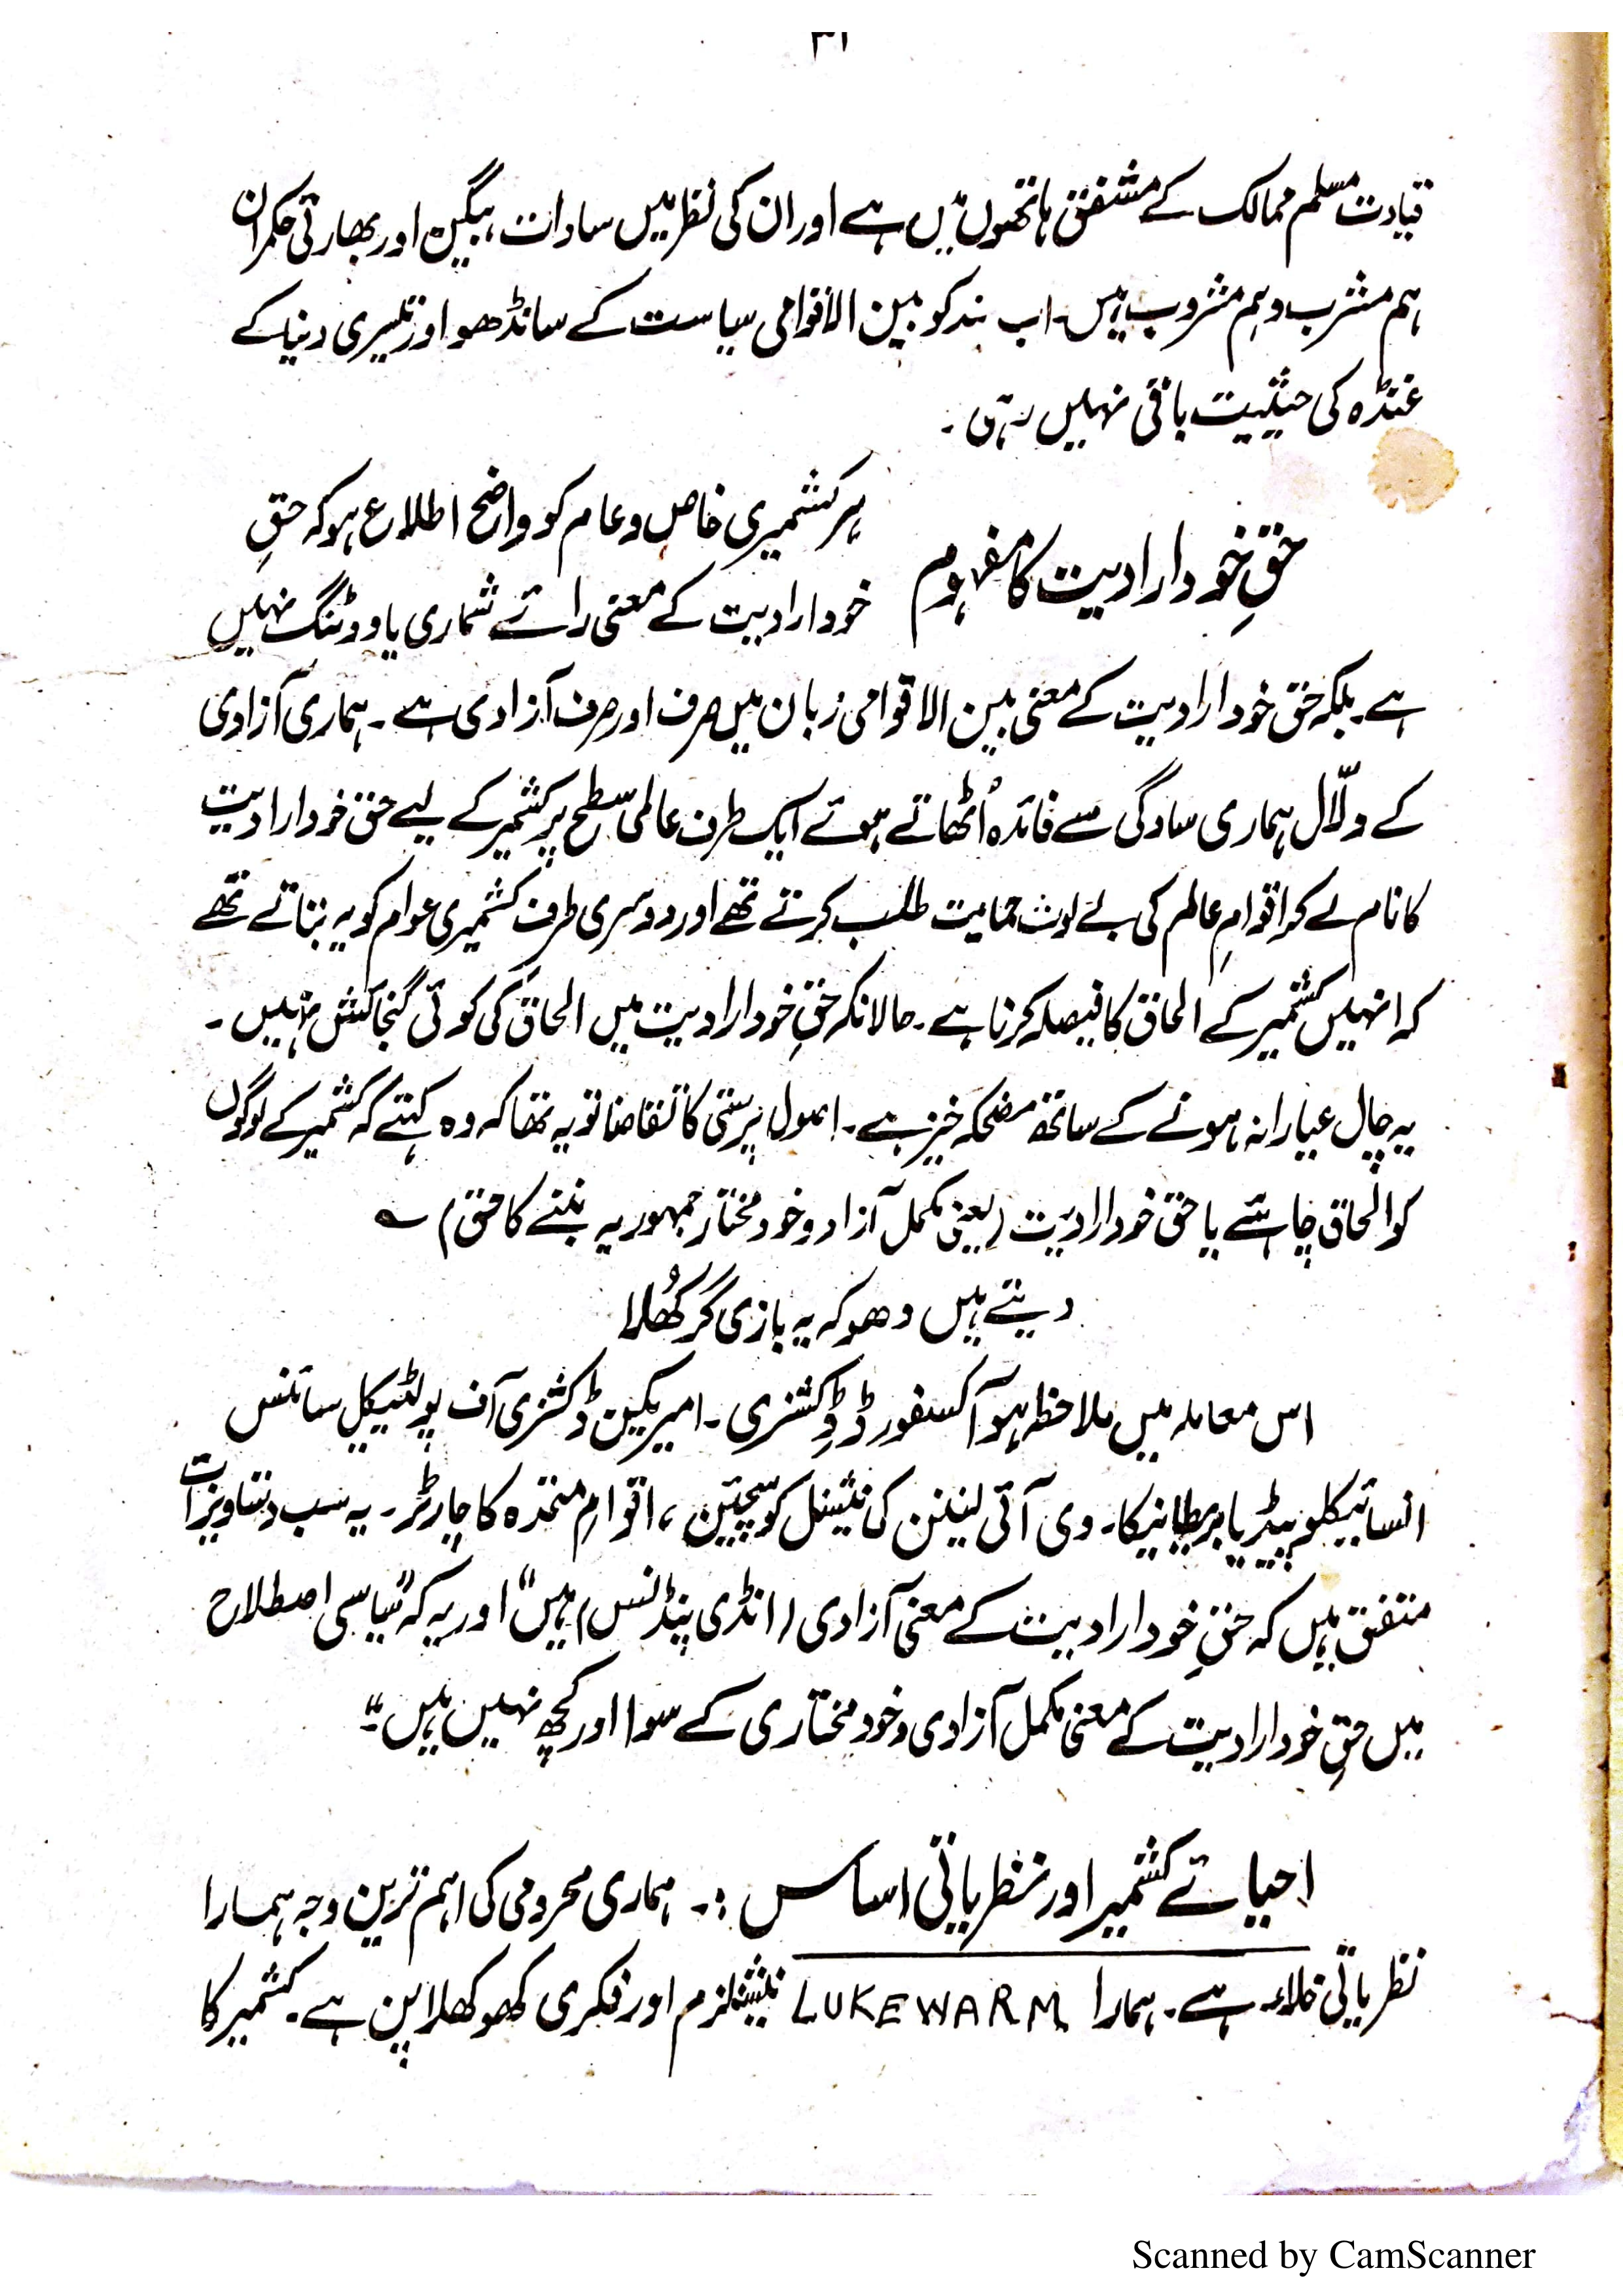 ۳۱
قیادت مسلم ممالک کے مشفق ہاتھوں میں ہے اور ان کی نظر میں سادات، بیگین اور بھارتی حکمران
ہم مشرب و ہم مشروب ہیں۔ اب ہند کو بین الاقوامی سیاست کے سانڈھ و اور تیسری دنیا کے
غنڈہ کی حیثیت باقی نہیں رہی۔
حقِ خود ارادیت کا مفہوم
ہر کشمیری خاص و عام کو واضح اطلاع ہو کہ حقِ
خود ارادیت کے معنی رائے شماری یا ووٹنگ نہیں
ہے۔ بلکہ حق خود ارادیت کے معنی بین الاقوامی زبان میں صرف اور صرف آزادی ہے۔ ہماری آزادی
کے دلّال ہماری سادگی سے فائدہ اُٹھاتے ہوئے ایک طرف عالمی سطح پر کشمیر کے لیے حق خود ارادیت
کا نام لے کر اقوامِ عالم کی بے لوث حمایت طلب کرتے تھے اور دوسری طرف کشمیری عوام کو یہ بتاتے تھے
کہ انہیں کشمیر کے الحاق کا فیصلہ کرنا ہے۔ حالانکہ حقِ خود ارادیت میں الحاق کی کوئی گنجائش نہیں۔
یہ چال عیارانہ ہونے کے ساتھ مضحکہ خیز ہے۔ اصول پرستی کا تقاضا تو یہ تھا کہ وہ کہتے کہ کشمیر کے لوگوں
کو الحاق چاہئے یا حق خود ارادیت (یعنی مکمل آزاد و خود مختار جمہوریہ بننے کا حق) ؎
دیتے ہیں دھوکہ یہ بازی گر کُھلا
اس معاملہ میں ملاحظہ ہو آکسفورڈ ڈکشنری۔ امیریکین ڈکشنری آف پولٹیکل سائنس
انسائیکلوپیڈیا بریطانیکا۔ وی آئی لینن کی نیشنل کوسچین، اقوامِ متحدہ کا چارٹر۔ یہ سب دستاویزات
متفق ہیں کہ حقِ خود ارادیت کے معنی آزادی (انڈی پنڈنس) ہیں" اور یہ کہ "سیاسی اصطلاح
میں حقِ خود ارادیت کے معنی مکمل آزادی و خود مختاری کے سوا اور کچھ نہیں ہیں۔"
احیائے کشمیر اور نظریاتی اساس :۔ ہماری محرومی کی اہم ترین وجہ ہمارا
نظریاتی خلاء ہے۔ ہمارا LUKEWARM نیشنلزم اور فکری کھوکھلا پن ہے۔ کشمیر کا
Scanned by CamScanner